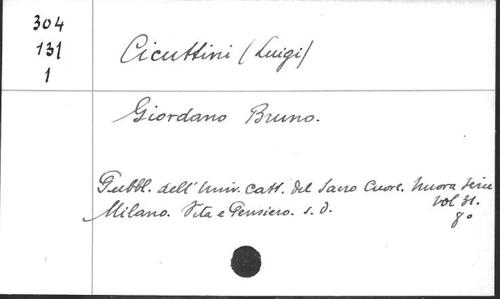 304
131
1
Cicuttini (Luigi)
Giordano Bruno.
Pubbl. dell' Univ. catt. del Sacro Cuore. Nuova serie
vol 31.
Milano. Vita e Pensiero. s. d.
8°